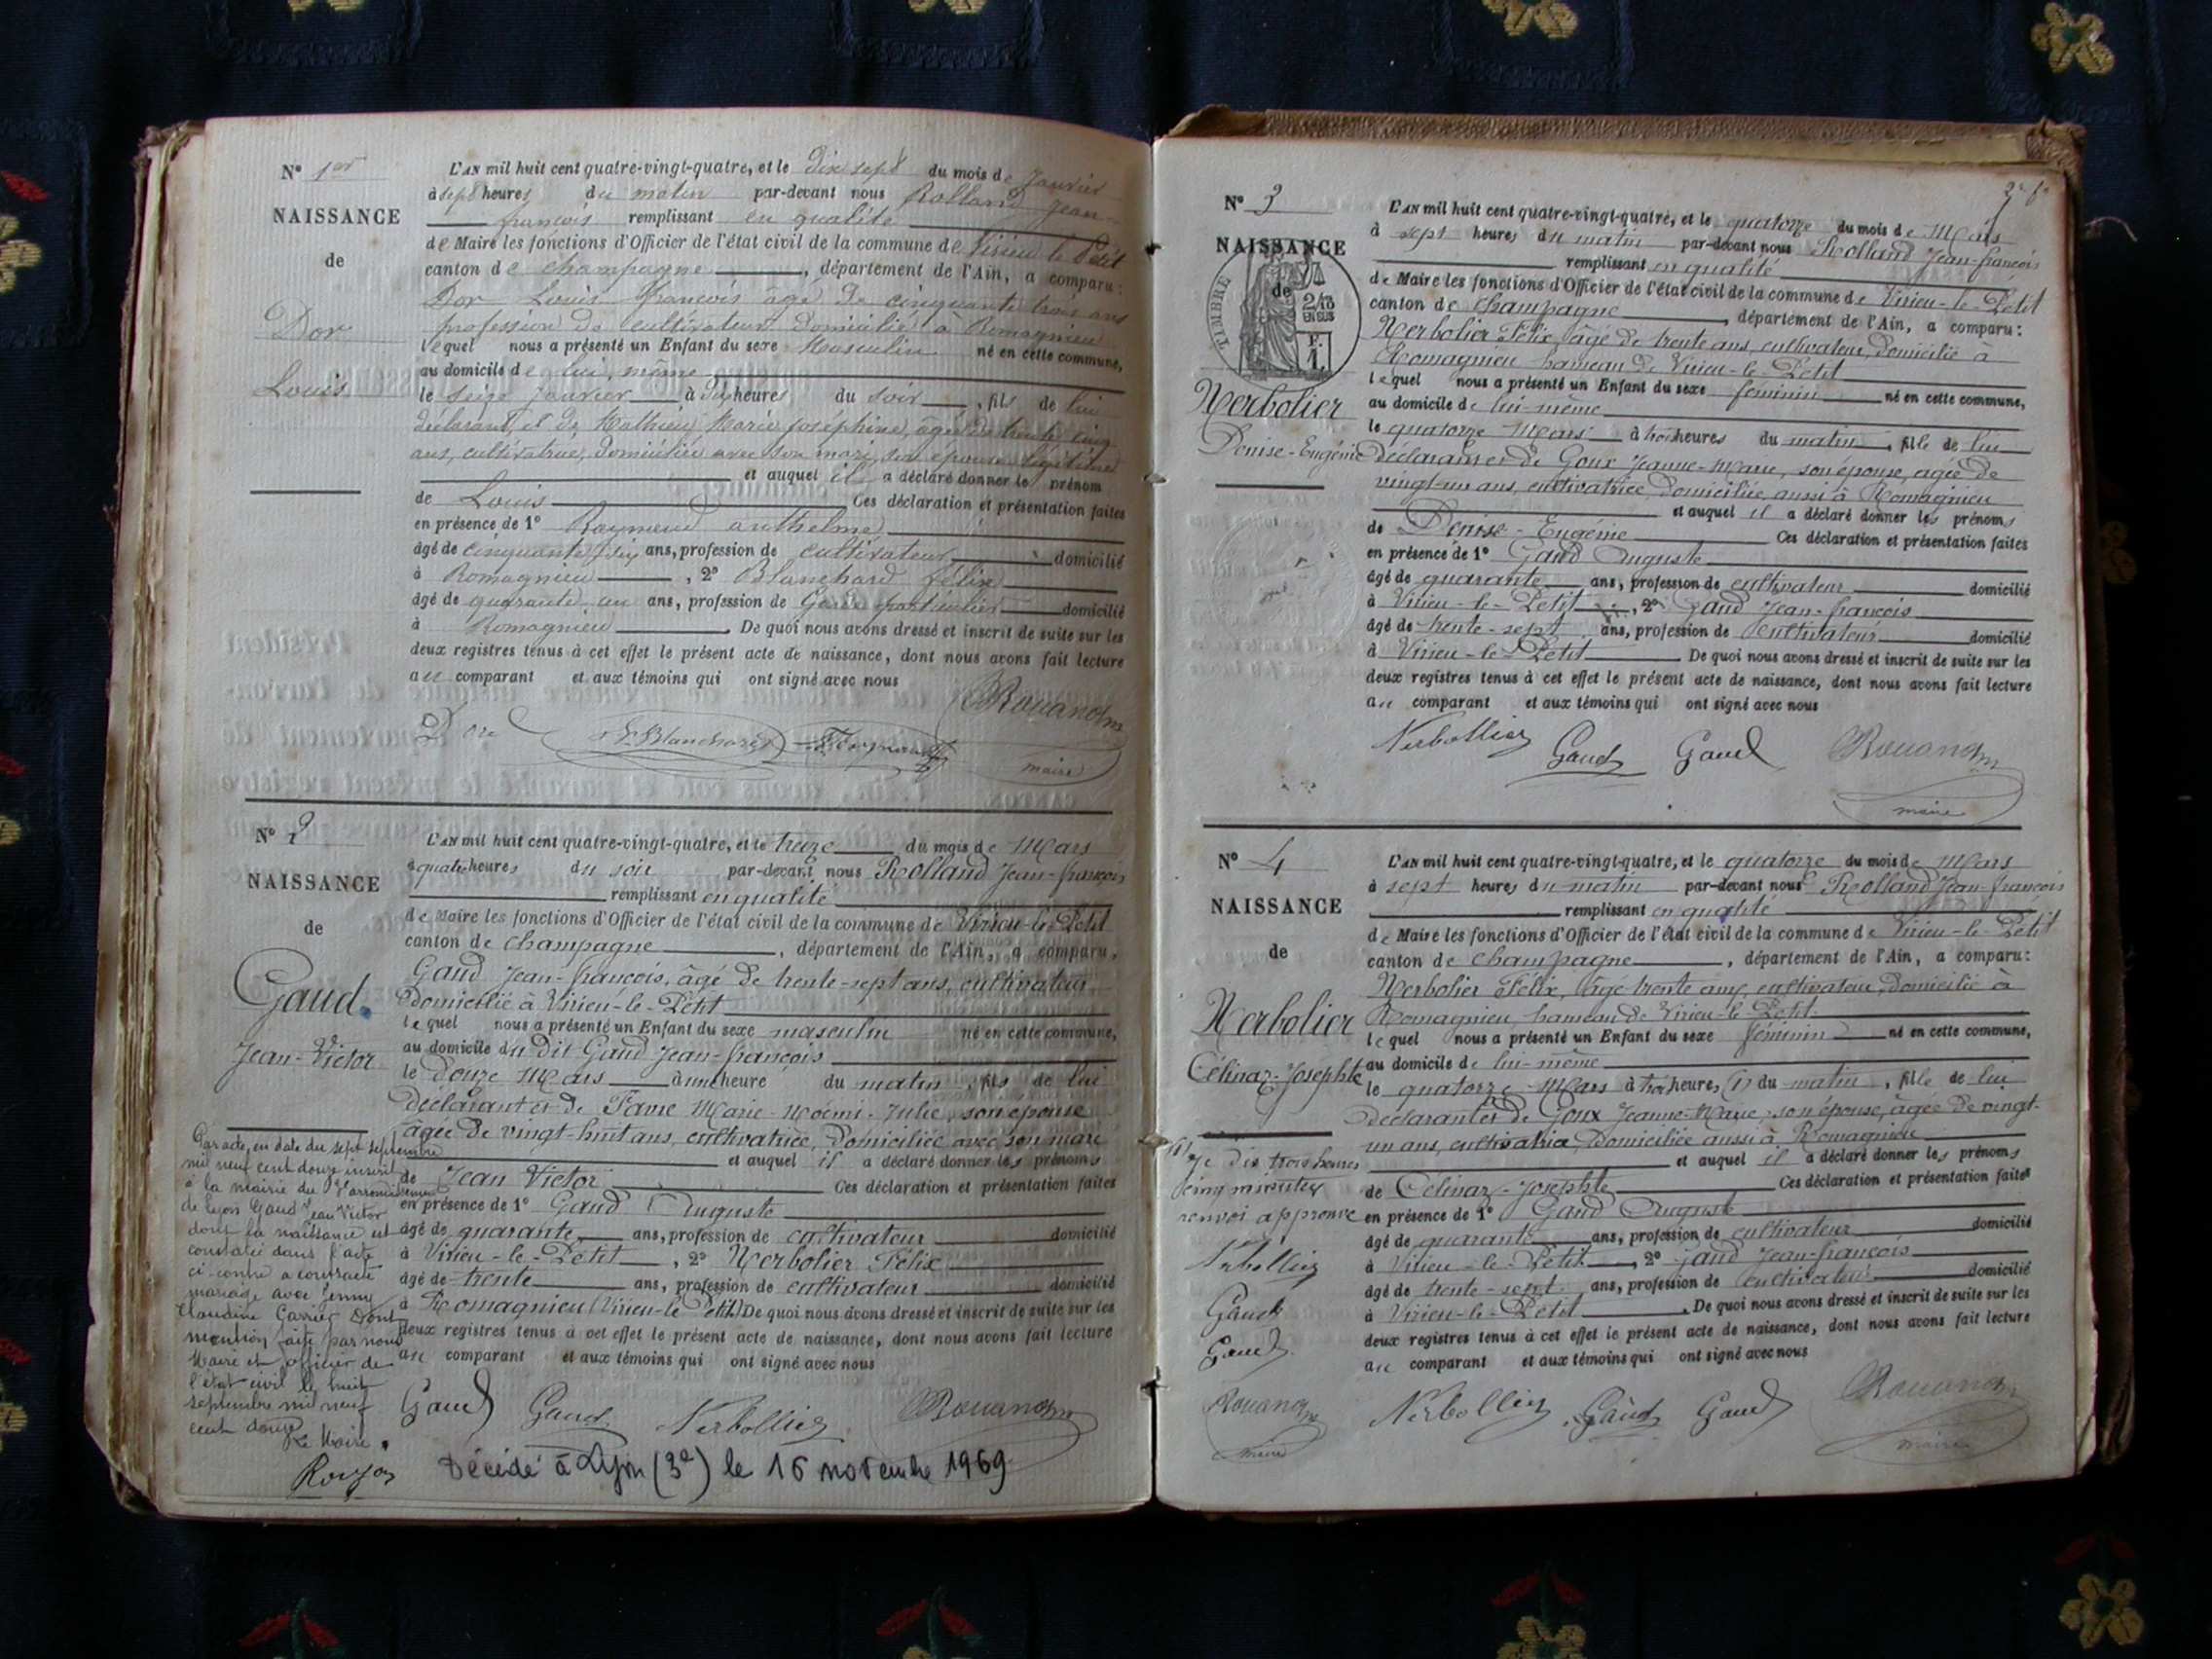 N° 1er
NAISSANCE
de
Dor
Louis
L'AN mil huit cent quatre-vingt-quatre, et le dix sept du mois de Janvier
à sept heures du matin par-devant nous Rolland Jean-
françois remplissant en qualité
de Maire les fonctions d'Officier de l'état civil de la commune de Virieu le Petit
canton de champagne, département de l'Ain, a comparu:
Dor Louis françois âgé de cinquante trois ans
profession de cultivateur domicilié à Romagnieu
lequel nous a présenté un Enfant du sexe Masculin né en cette commune,
au domicile de lui, même
le seize Janvier à dix heures du soir, fils de lui
déclarant, et de Mathieu Marie Joséphine, âgée de trente cinq
ans, cultivatrice, domiciliée avec son mari, son épouse légitime
et auquel il a déclaré donner le prénom
de Louis Ces déclaration et présentation faites
en présence de 1° Raymond anthelme
âgé de cinquante six ans, profession de cultivateur domicilié
à Romagnieu, 2° Blanchard félix
âgé de quarante un ans, profession de Garde particulier domicilié
à Romagnieu. De quoi nous avons dressé et inscrit de suite sur les
deux registres tenus à cet effet le présent acte de naissance, dont nous avons fait lecture
au comparant et aux témoins qui ont signé avec nous
Dor Blanchard
maire
N° 2
NAISSANCE
de
Gaud.
Jean-Victor
L'AN mil huit cent quatre-vingt-quatre, et le treize du mois de Mars
à quatre heures du soir par-devant nous Rolland Jean-françois
remplissant en qualité
de Maire les fonctions d'Officier de l'état civil de la commune de Virieu-le-Petit
canton de champagne, département de l'Ain, a comparu,
Gaud Jean-francois, âgé de trente-sept ans, cultivateur
domicilié à Virieu-le-Petit
lequel nous a présenté un Enfant du sexe masculin né en cette commune,
au domicile du dit Gaud Jean-françois
le douze Mars à une heure du matin, fils de lui
déclarant et de Favre Marie-Noémi-Julie, son épouse
âgée de vingt-huit ans, cultivatrice, domiciliée avec son mari
et auquel il a déclaré donner les prénoms
de Jean Victor Ces déclaration et présentation faites
en présence de 1° Gaud Auguste
âgé de quarante ans, profession de cultivateur domicilié
à Virieu-le-Petit, 2° Nerbolier Félix
âgé de trente ans, profession de cultivateur domicilié
à Romagnieu (Virieu-le-Petit) De quoi nous avons dressé et inscrit de suite sur les
deux registres tenus à cet effet le présent acte de naissance, dont nous avons fait lecture
au comparant et aux témoins qui ont signé avec nous
Gaud Gaud Nerbollier
Décédé à Lyon (3e) le 16 novembre 1969
Par acte, en date du sept septembre
mil neuf cent douze inscrit
à la mairie du arrondissement
de Lyon Gaud Jean Victor
dont la naissance est
constatée dans l'acte
ci-contre a contracté
mariage avec Jenny
Claudine Carrier Dont
mention faite par nous
Maire et officier de
l'état civil le huit
septembre mil neuf
cent douze
Le Maire
N° 3
NAISSANCE
de
TIMBRE
2/10
EN SUS
F.
1.
Nerbolier
Denise-Eugénie
L'AN mil huit cent quatre-vingt-quatre, et le quatorze du mois de Mars
à sept heures du matin par-devant nous Rolland Jean-françois
remplissant en qualité
de Maire les fonctions d'Officier de l'état civil de la commune de Virieu-le-Petit
canton de champagne, département de l'Ain, a comparu:
Nerbolier Félix, âgé de trente ans, cultivateur, domicilié à
Romagnieu hameau de Virieu-le-Petit
lequel nous a présenté un Enfant du sexe féminin né en cette commune,
au domicile de lui-même
le quatorze Mars à trois heures du matin, fille de lui
déclarant et de Goux Jeanne-Marie, son épouse, agée de
vingt-un ans, cultivatrice domiciliée aussi à Romagnieu
et auquel il a déclaré donner les prénoms
de Denise-Eugénie Ces déclaration et présentation faites
en présence de 1° Gaud Auguste
âgé de quarante ans, profession de cultivateur domicilié
à Virieu-le-Petit, 2° Gaud Jean-françois
âgé de trente-sept ans, profession de cultivateur domicilié
à Virieu-le-Petit De quoi nous avons dressé et inscrit de suite sur les
deux registres tenus à cet effet le présent acte de naissance, dont nous avons fait lecture
au comparant et aux témoins qui ont signé avec nous
Nerbollier Gaud Gaud
maire
N° 4
NAISSANCE
de
Nerbolier
Célinaz-Josephte
L'AN mil huit cent quatre-vingt-quatre, et le quatorze du mois de Mars
à sept heures du matin par-devant nous Rolland Jean-francois
remplissant en qualité
de Maire les fonctions d'Officier de l'état civil de la commune de Virieu-le-Petit
canton de champagne, département de l'Ain, a comparu:
Nerbolier Félix, âgé trente ans, cultivateur, domicilié à
Romagnieu, hameau de Virieu-le-Petit
lequel nous a présenté un Enfant du sexe féminin né en cette commune,
au domicile de lui-même
le quatorze Mars à trois heures, (1) du matin, fille de lui
déclarant et de Goux Jeanne-Marie, son épouse, âgée de vingt-
un ans, cultivatrice domiciliée aussi à Romagnieu
et auquel il a déclaré donner les prénoms
de Célinaz-Josephte Ces déclaration et présentation faites
en présence de 1° Gaud Auguste
âgé de quarante ans, profession de cultivateur domicilié
à Virieu-le-Petit, 2° Gaud Jean-francois
âgé de trente-sept ans, profession de cultivateur domicilié
à Virieu-le-Petit. De quoi nous avons dressé et inscrit de suite sur les
deux registres tenus à cet effet le présent acte de naissance, dont nous avons fait lecture
au comparant et aux témoins qui ont signé avec nous
Nerbollier Gaud Gaud
maire
(1) Je dis trois heures
cinq minutes
renvoi approuvé
Nerbollier
Gaud
Gaud
maire